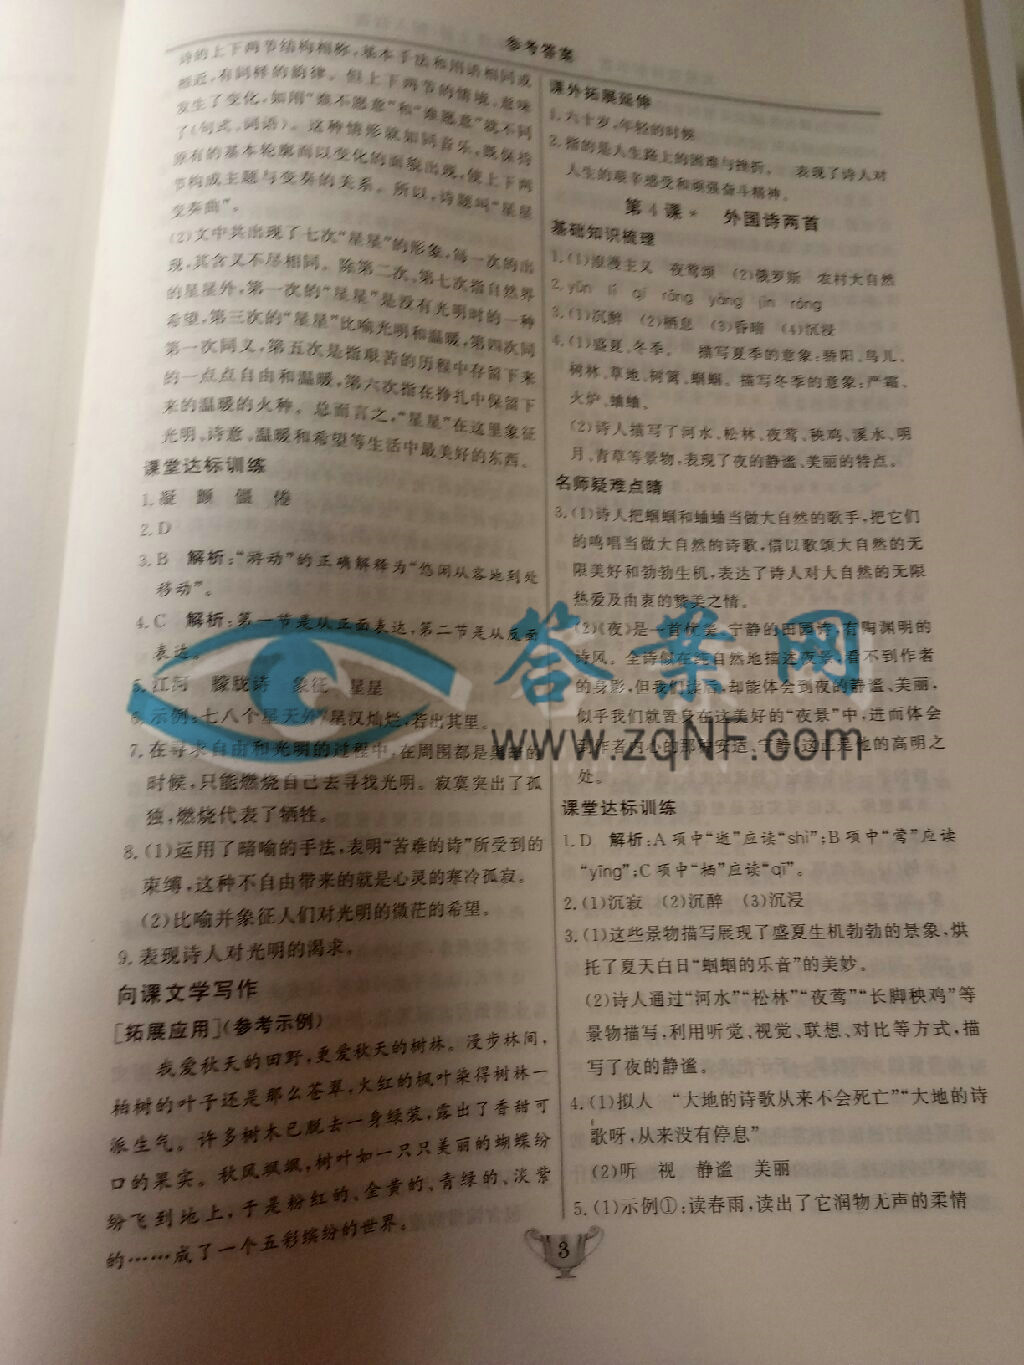 参考答案
诗的上下两节结构相称，基本手法和用语相同或
相近，有同样的韵律。但上下两节的情境、意味
发生了变化，如用“谁不愿意”和“谁愿意”就不同
了(句式、词语)。这种情形就如同音乐，既保持
原有的基本轮廓而以变化的面貌出现，使上下两
节构成主题与变奏的关系。所以，诗题叫“星星
变奏曲”。
(2)文中共出现了七次“星星”的形象，每一次的出
现，其含义不尽相同。除第二次、第七次指自然界
的星星外，第一次的“星星”是没有光明时的一种
希望，第三次的“星星”比喻光明和温暖，第四次同
第一次同义，第五次是指艰苦的历程中存留下来
的一点点自由和温暖，第六次指在挣扎中保留下
来的温暖的火种。总而言之，“星星”在这里象征
光明、诗意、温暖和希望等生活中最美好的东西。
课堂达标训练
1.凝　颤　僵　倦
2.D
3.B　解析：“游动”的正确解释为“悠闲从容地到处
移动”。
4.C　解析：第一节是从正面表达，第二节是从反面
表达。
5.江河　朦胧诗　象征　星星
6.示例：七八个星天外/星汉灿烂，若出其里。
7.在寻求自由和光明的过程中，在周围都是黑暗的
时候，只能燃烧自己去寻找光明。寂寞突出了孤
独，燃烧代表了牺牲。
8.(1)运用了暗喻的手法，表明“苦难的诗”所受到的
束缚，这种不自由带来的就是心灵的寒冷孤寂。
(2)比喻并象征人们对光明的微茫的希望。
9.表现诗人对光明的渴求。
向课文学写作
[拓展应用](参考示例)
我爱秋天的田野，更爱秋天的树林。漫步林间，
柏树的叶子还是那么苍翠，火红的枫叶染得树林一
派生气。许多树木已脱去一身绿装，露出了香甜可
口的果实。秋风飒飒，树叶如一只只美丽的蝴蝶纷
纷飞到地上，于是粉红的、金黄的、青绿的、淡紫
的……成了一个五彩缤纷的世界。
课外拓展延伸
1.六十岁，年轻的时候
2.指的是人生路上的困难与挫折。　表现了诗人对
人生的艰辛感受和顽强奋斗精神。
第4课*　外国诗两首
基础知识梳理
1.(1)浪漫主义　夜莺颂　(2)俄罗斯　农村大自然
2.yūn　lí　qī　rǎng　yāng　jìn　róng
3.(1)沉醉　(2)栖息　(3)昏暗　(4)沉浸
4.(1)盛夏、冬季。　描写夏季的意象：骄阳、鸟儿、
树林、草地、树篱、蝈蝈。描写冬季的意象：严霜、
火炉、蛐蛐。
(2)诗人描写了河水、松林、夜莺、秧鸡、溪水、明
月、青草等景物，表现了夜的静谧、美丽的特点。
名师疑难点睛
3.(1)诗人把蝈蝈和蛐蛐当做大自然的歌手，把它们
的鸣唱当做大自然的诗歌，借以歌颂大自然的无
限美好和勃勃生机，表达了诗人对大自然的无限
热爱及由衷的赞美之情。
(2)《夜》是一首优美、宁静的田园诗，有陶渊明的
诗风。全诗似在纯自然地描述夜景，看不到作者
的身影，但我们读后，却能体会到夜的静谧、美丽，
似乎我们就置身在这美好的“夜景”中，进而体会
到作者内心的那种安适、宁静，这正是他的高明之
处。
课堂达标训练
1.D　解析：A项中“逝”应读“shì”；B项中“莺”应读
“yīng”；C项中“栖”应读“qī”。
2.(1)沉寂　(2)沉醉　(3)沉浸
3.(1)这些景物描写展现了盛夏生机勃勃的景象，烘
托了夏天白日“蝈蝈的乐音”的美妙。
(2)诗人通过“河水”“松林”“夜莺”“长脚秧鸡”等
景物描写，利用听觉、视觉、联想、对比等方式，描
写了夜的静谧。
4.(1)拟人　“大地的诗歌从来不会死亡”“大地的诗
歌呀，从来没有停息”
(2)听　视　静谧　美丽
5.(1)示例①：读春雨，读出了它润物无声的柔情
3
答案网
www.zqNF.com